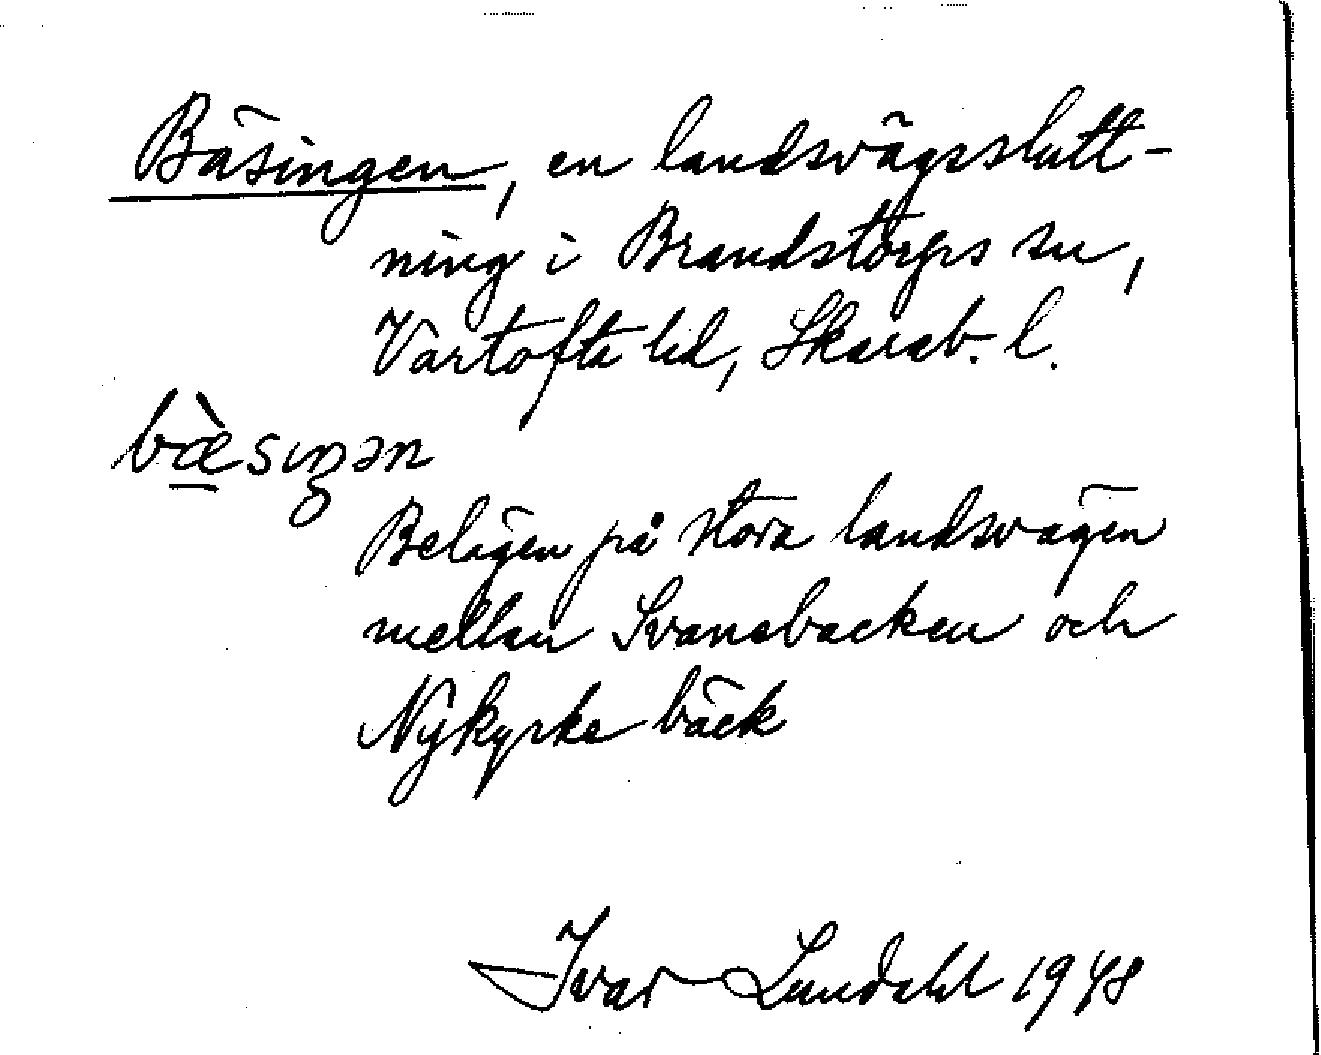 Bäsingen, en landsvägsslutt-
ning i Brandstorps sn,
Vartofta hd, Skarab. l.
bæ̀sıŋən
Belägen på stora landsvägen
mellan Svansbacken och
Nykyrke bäck
Ivar Lundahl 1948